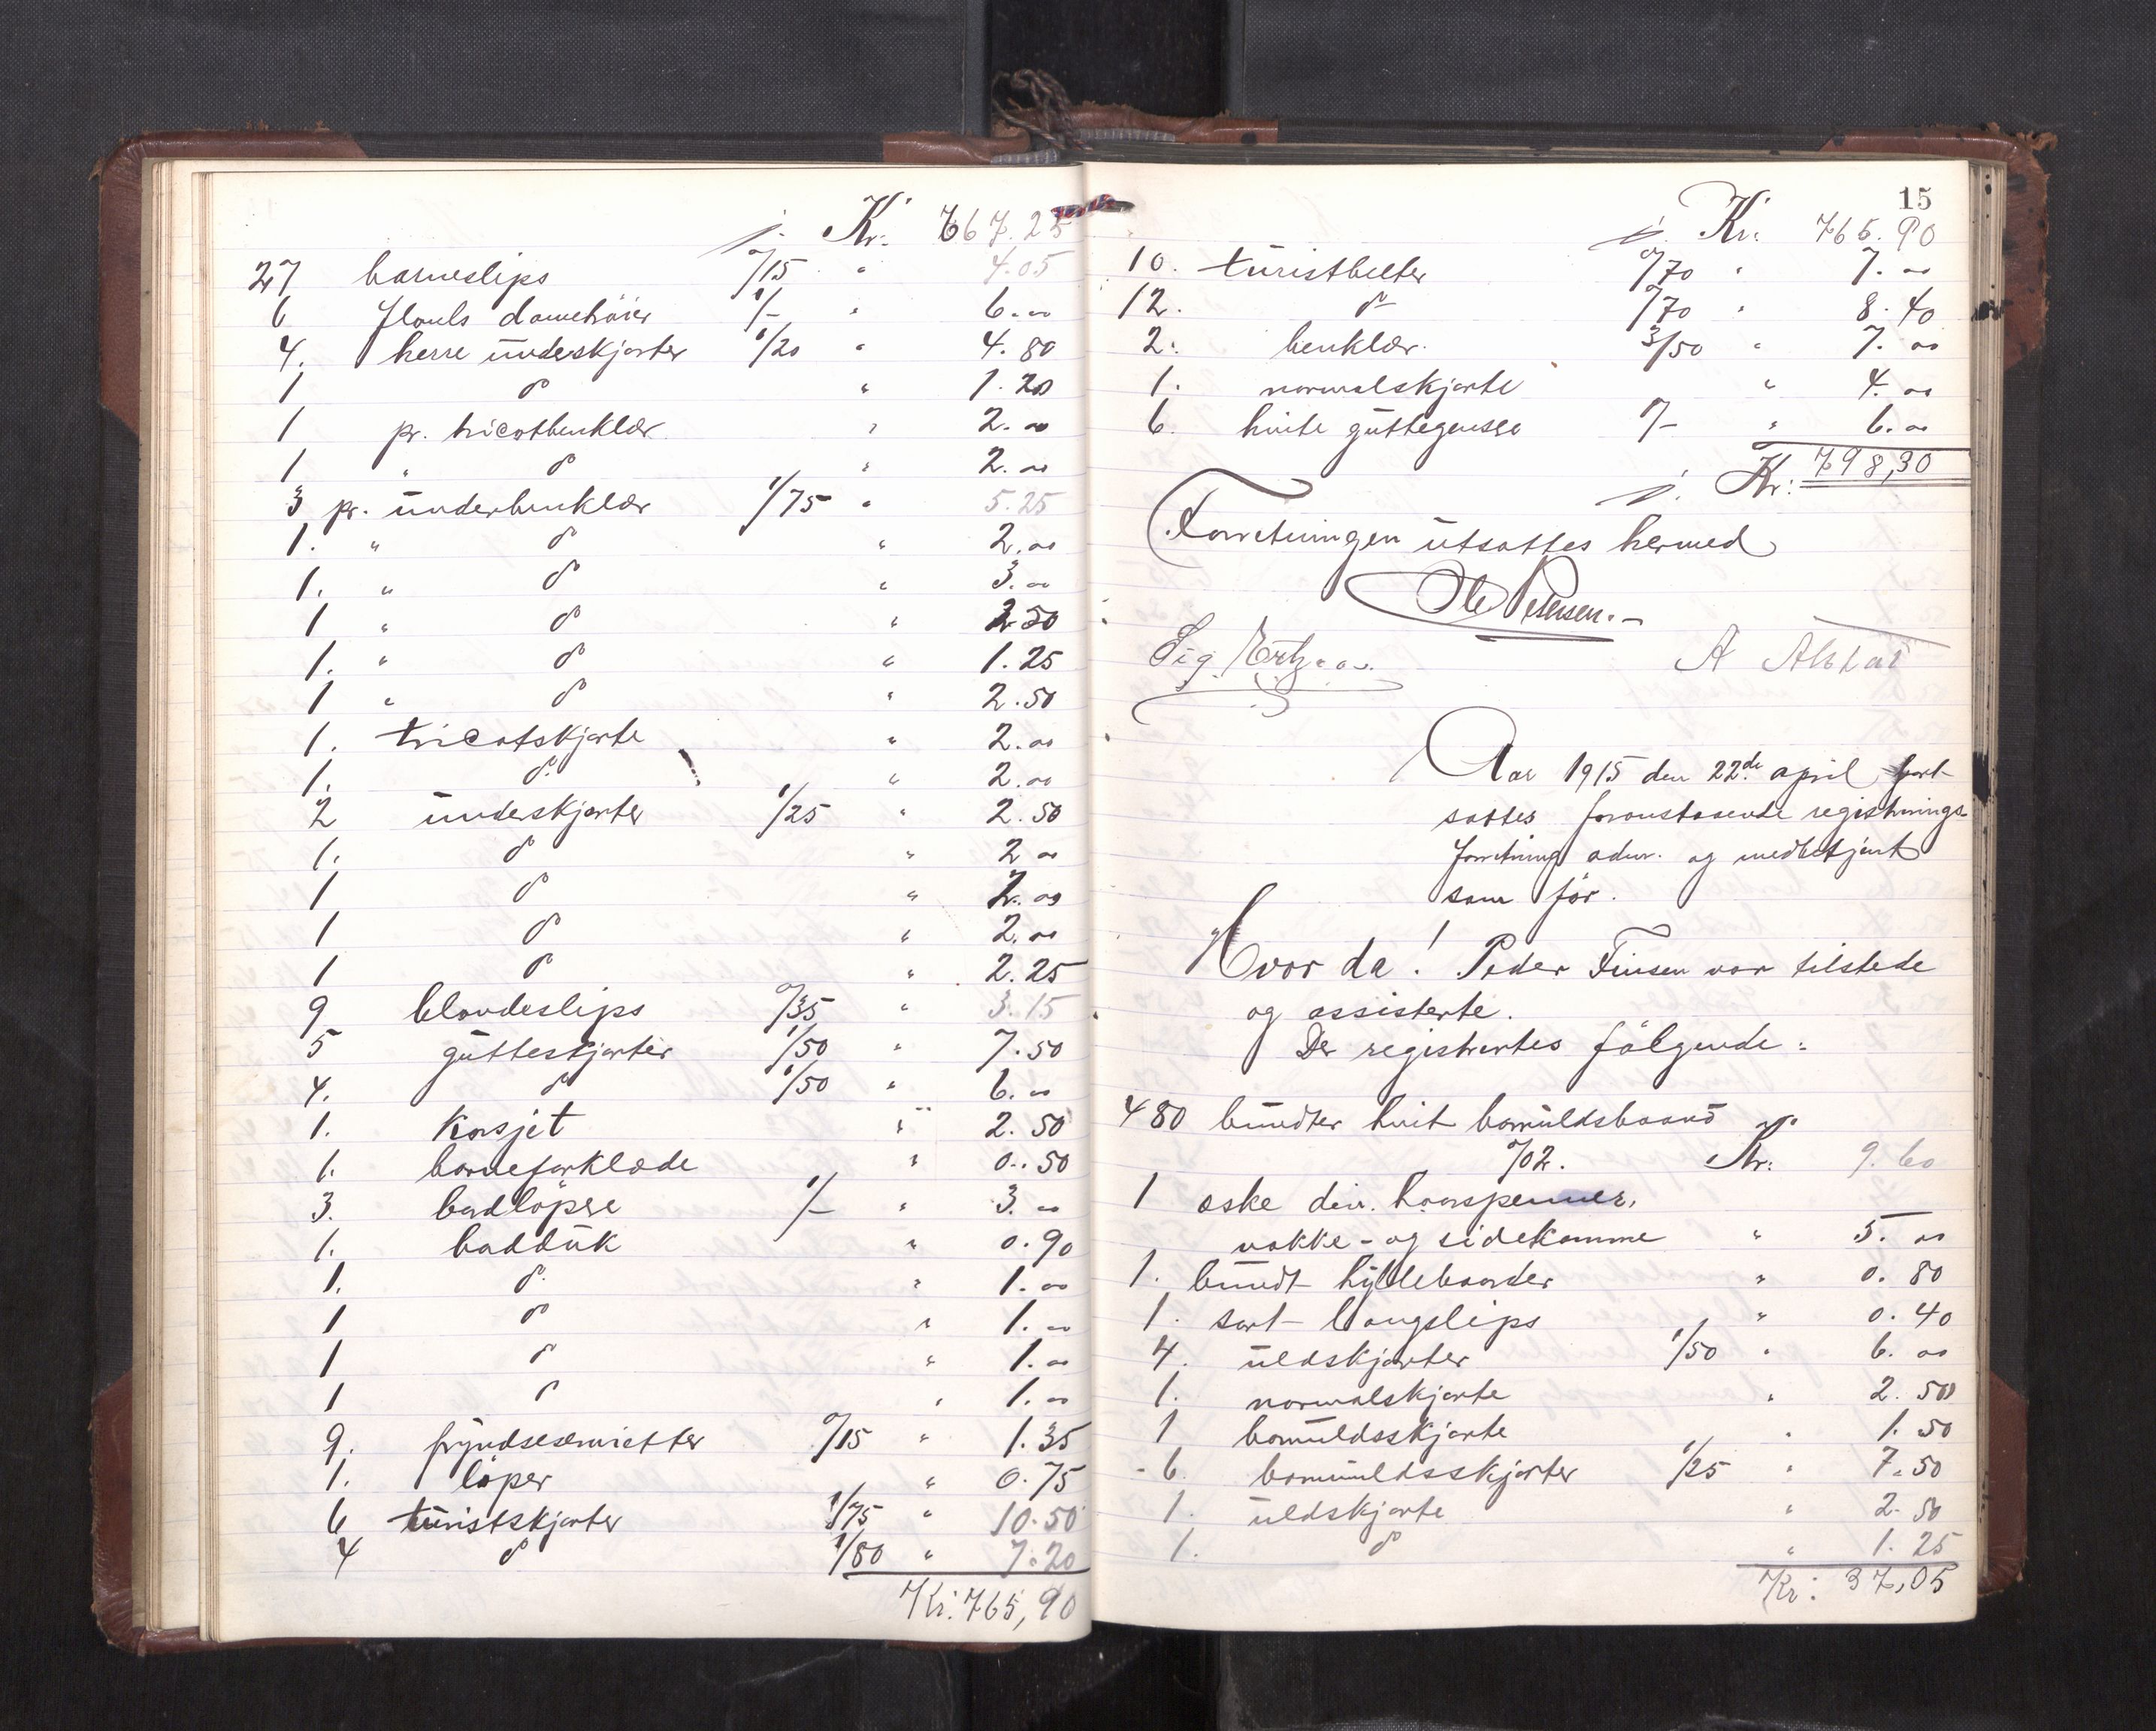 Kr. 667.25
27 barneslips 0/15 " 4.05
6 flouls dametröier 1/- " 6.00
4. herre underskjorter 1/20 " 4.80
1 do " 1.20
1 pr. tricotbenklær " 2.00
1 " do " 2.00
3 pr. underbenklær 1/75 " 5.25
1. " do " 2.00
1. " do " 3.00
1 " do " 2.50
1. " do " 1.25
1 " do " 2.50
1. tricotskjorte " 2.00
1. do. " 2.00
2 underskjorter 1/25 " 2.50
1. do " 2.00
1 do " 2.00
1 do " 2.00
1 do " 2.25
9 blondeslips 0/35 " 3.15
5 gutteskjorter 1/50 " 7.50
4. do 1/50 " 6.00
1. Korsjet " 2.50
1. barneforklæde " 0.50
3. bordlöpere 1/- " 3.00
1. bordduk " 0.90
1. do. " 1.00
1 do " 1.00
1 do " 1.00
1 do " 1.00
9. fryndseservietter 0/15 " 1.35
1. löper " 0.75
6 turistskjorter 1/75 " 10.50
4 do 1/80 " 7.20
Kr. 765,90
15
Kr. 765.90
10. turistbelter 0/70 " 7.00
12. do 0/70 " 8.40
2. benklær. 3/50 " 7.00
1. normalskjorte " 4.00
6. hvite guttegensere 1/- " 6.00
Kr: 798,30
Forretningen utsattes hermed
Ole Petersen.-
Sig.
A
Aar 1915 den 22de april fort-
sattes foranstaaende registrerings-
forretning adm. og medbetjent
som för.
Hvor da! Peder Finsen var tilstede
og assisterte.
Der registrertes fölgende:
480 bundter hvit bomuldsbaand
0/02. Kr: 9.60
1 æske div. haarspenner,
nakke- og sidekamme " 5.00
1. bundt hyldeborder " 0.80
1. sort langslips " 0.40
4. uldskjorter 1/50 " 6.00
1. normalskjorte " 2.50
1 bomuldsskjorte " 1.50
6. bomuldsskjorter 1/25 " 7.50
1. uldskjorte " 2.50
1. do " 1.25
Kr: 37,05